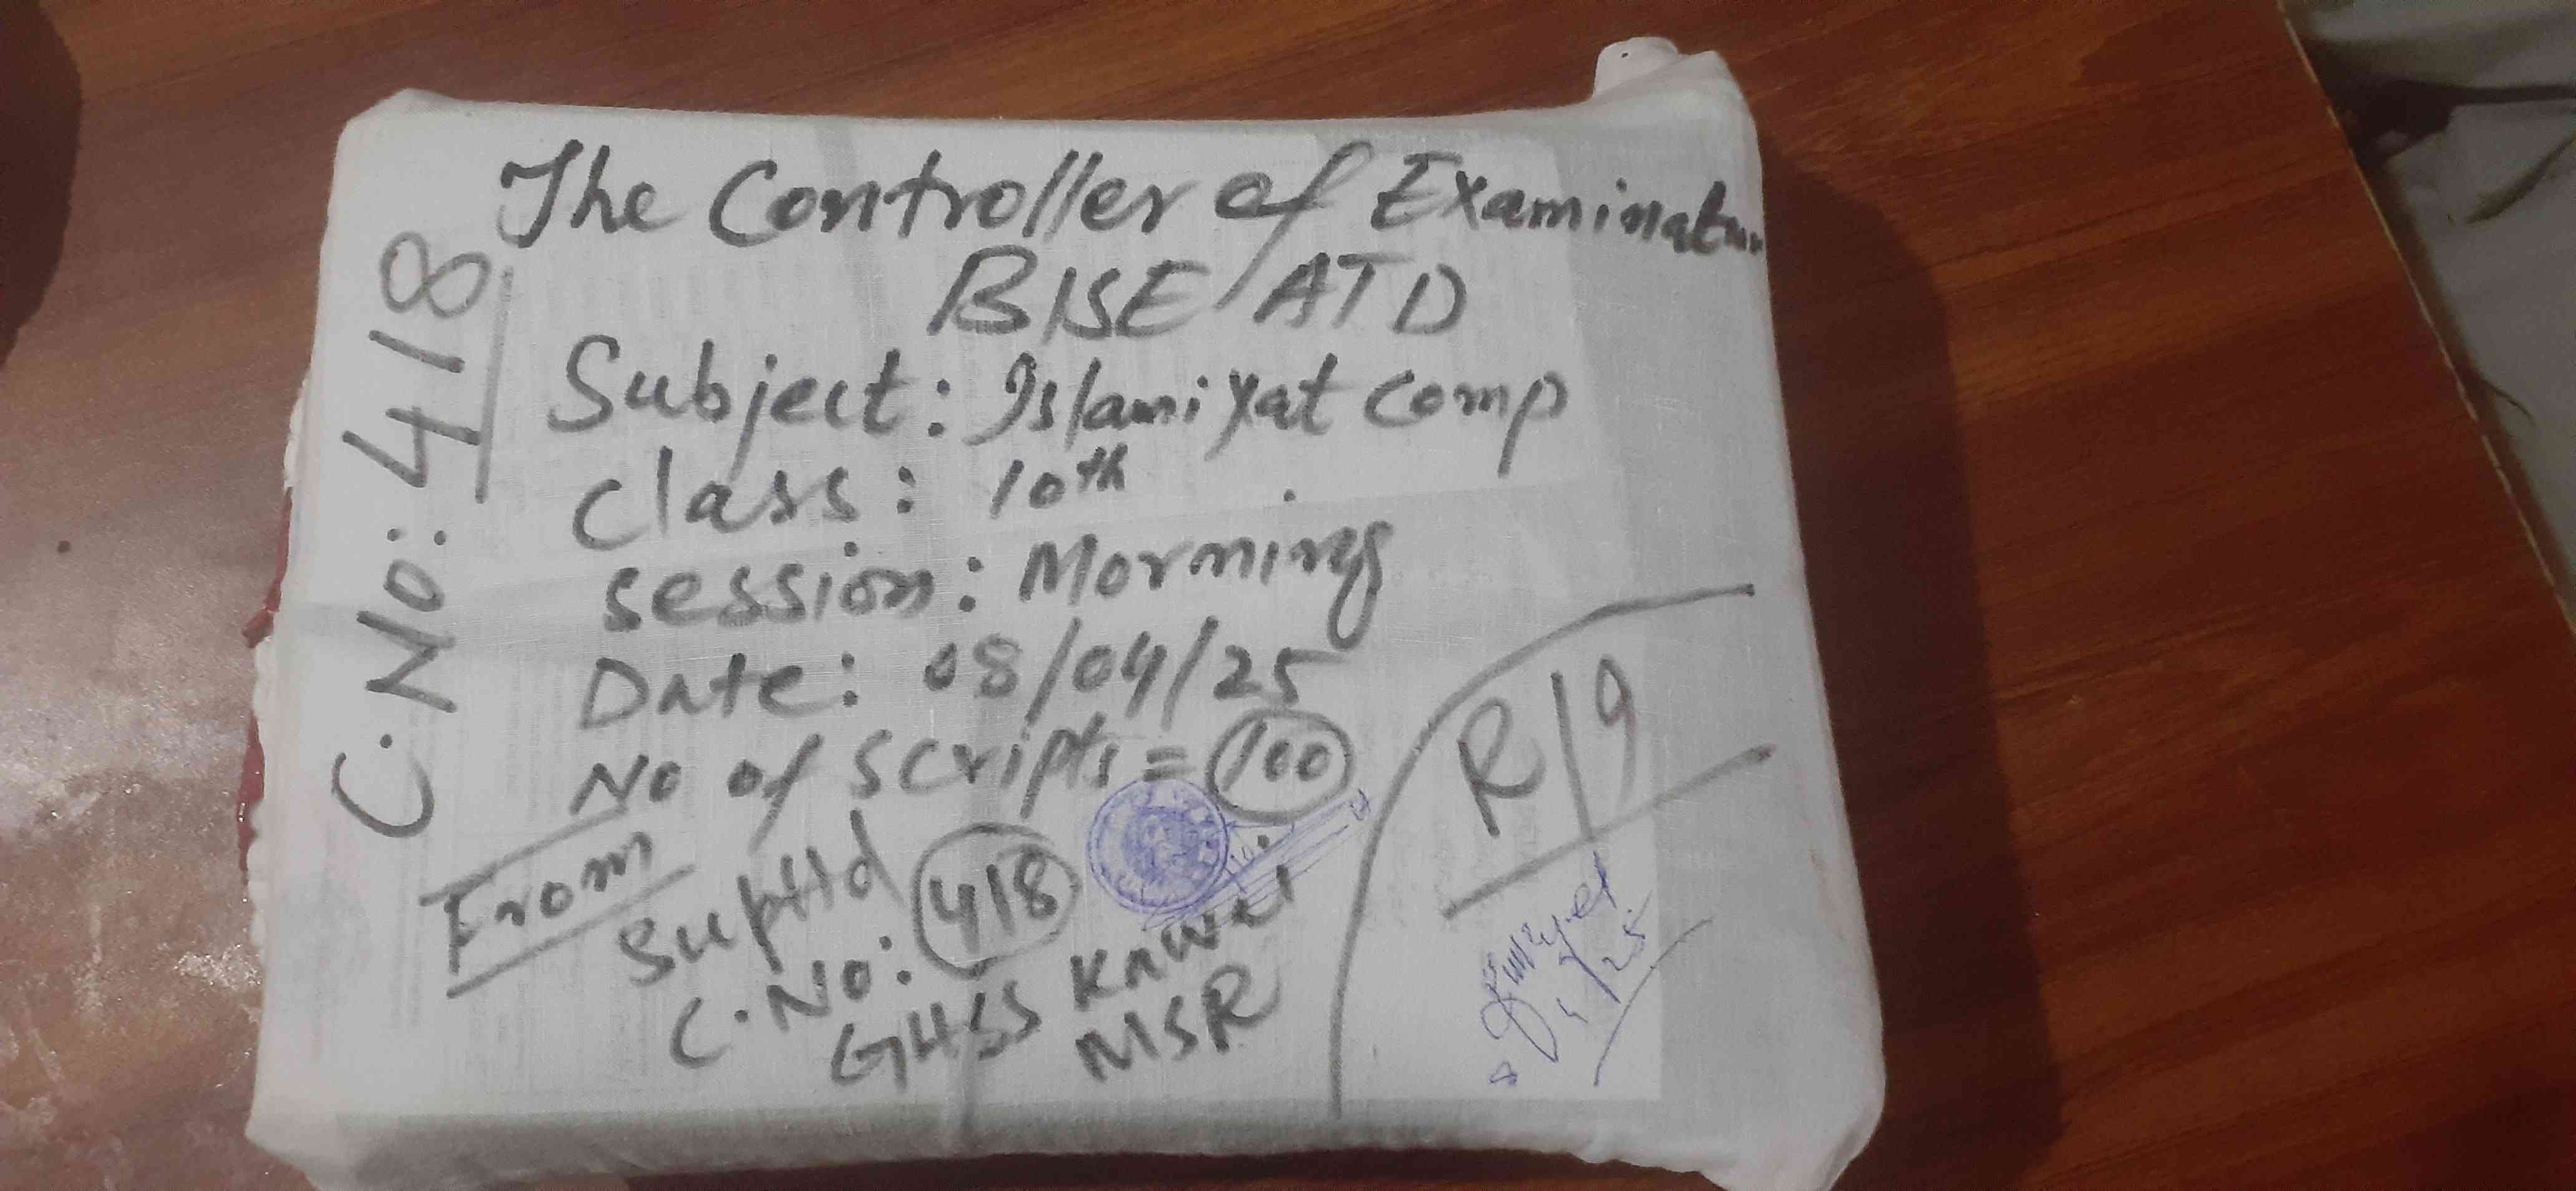 The Controller of Examination
BISE ATD
C.No: 418
Subject: Islamiyat Comp
Class: 10th
Session: Morning
Date: 08/04/25
No of Scripts = 100
From
Suptld
C.No: 418
GHSS Kawai
MSR
R/9